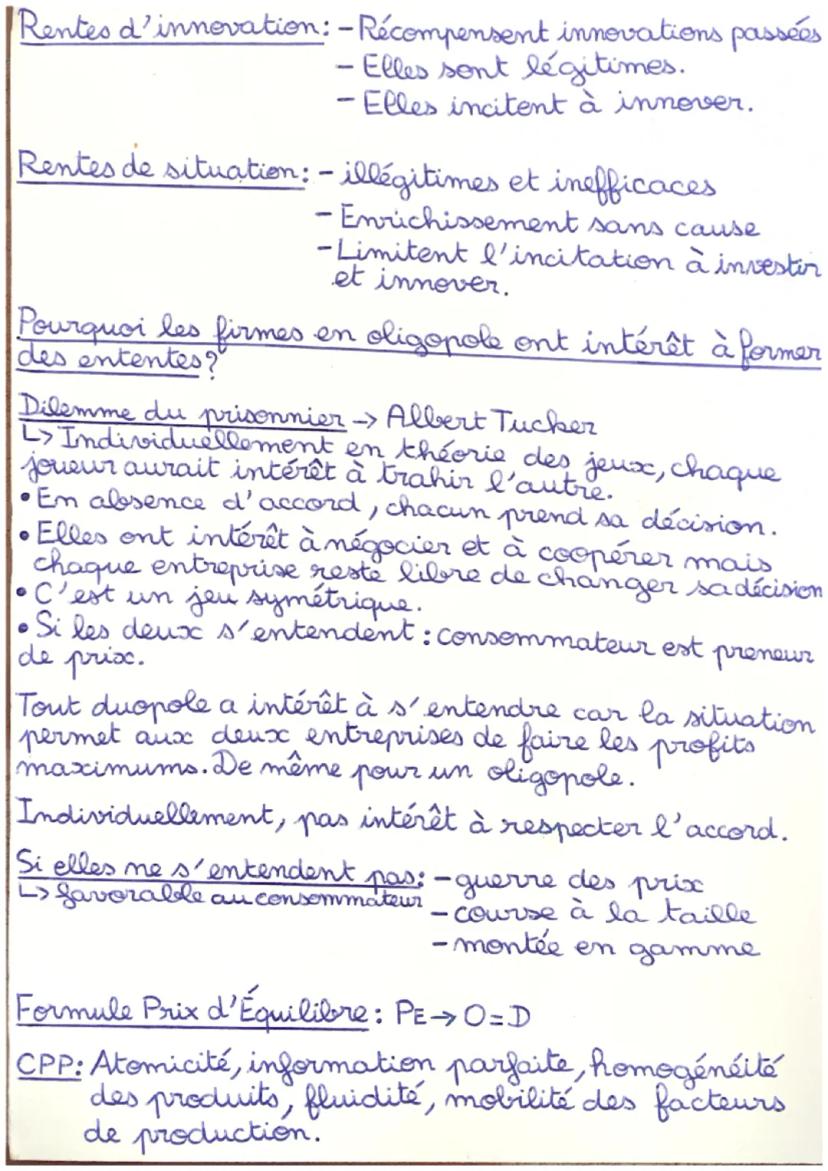 Rentes d'innovation: - Récompensent innovations passées
- Elles sont légitimes.
- Elles incitent à innover.
Rentes de situation: - illégitimes et inefficaces
- Enrichissement sans cause
- Limitent l'incitation à investir
et innover.
Pourquoi les firmes en oligopole ont intérêt à former
des ententes?
Dilemme du prisonnier → Albert Tucker
↳ Individuellement en théorie des jeux, chaque
joueur aurait intérêt à trahir l'autre.
• En absence d'accord, chacun prend sa décision.
• Elles ont intérêt à négocier et à coopérer mais
chaque entreprise reste libre de changer sa décision
• C'est un jeu symétrique.
• Si les deux s'entendent : consommateur est preneur
de prix.
Tout duopole a intérêt à s'entendre car la situation
permet aux deux entreprises de faire les profits
maximums. De même pour un oligopole.
Individuellement, pas intérêt à respecter l'accord.
Si elles ne s'entendent pas: - guerre des prix
↳ favorable au consommateur - course à la taille
- montée en gamme
Formule Prix d'Équilibre : PE → O = D
CPP: Atomicité, information parfaite, homogénéité
des produits, fluidité, mobilité des facteurs
de production.